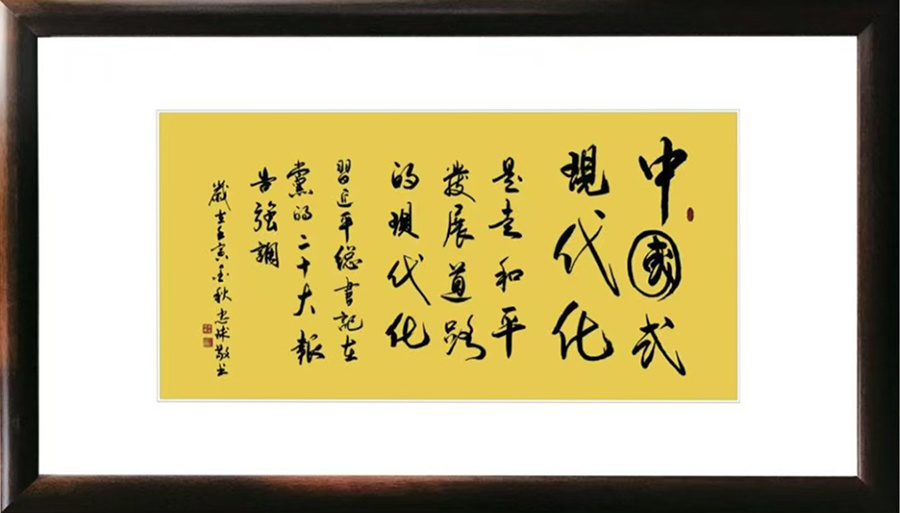 中國式
現代化
是走和平
發展道路
的現代化
習近平總書記在
黨的二十大報
告強調
歲在壬寅金秋忠林敬书